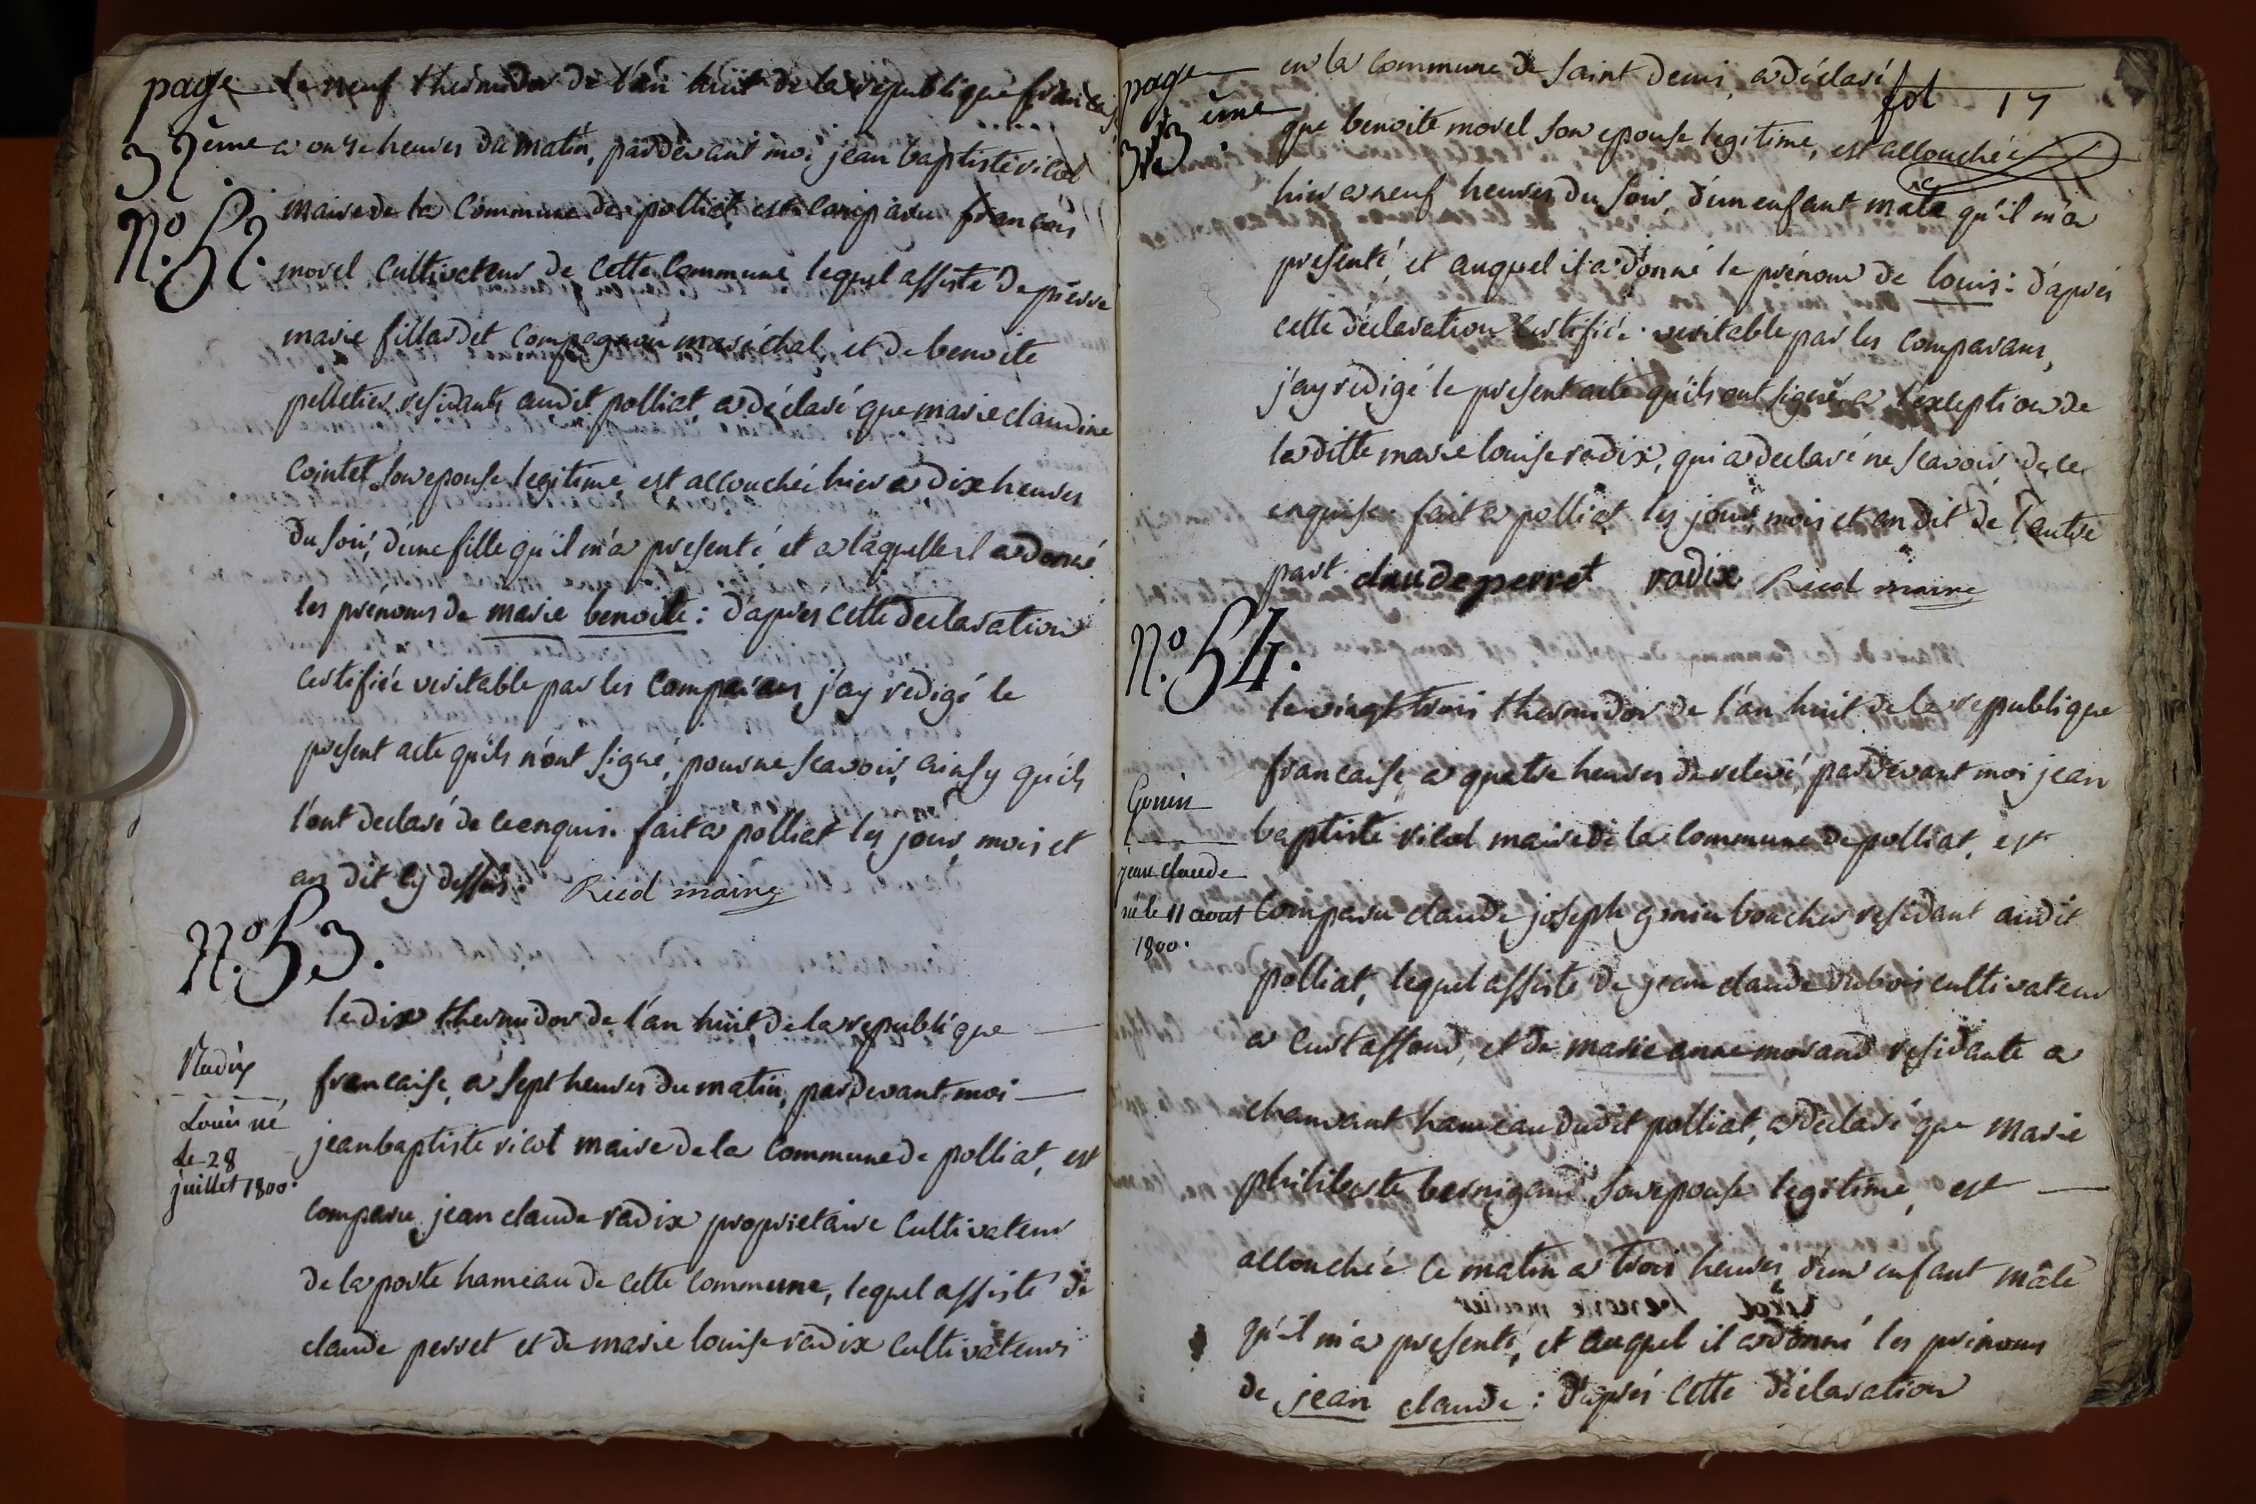 page
32ème
N.° 52.
le neuf thermidor de l'an huit de la republique française
a onze heures du matin, pardevant moi jean baptiste ricol
maire de la commune de polliat est comparu francois
morel cultivateur de cette commune lequel assisté de pierre
marie fillardet compagnon maréchal, et de benoite
pelletier residants audit polliat a déclaré que marie claudine
cointet son epouse legitime est accouchée hier a dix heures
du soir, d'une fille qu'il m'a presenté et a laquelle il a donné
les prénoms de marie benoite : d'après cette declaration
certifiée veritable par les comparans j'ay redigé le
present acte qu'ils n'ont signé, pour ne scavoir, ainsy qu'ils
l'ont declaré de ce enquis. fait a polliat les jour, mois et
an dit cy dessus. Ricol maire
N.° 53.
Radix
Louis né
le 28
juillet 1800.
le dix thermidor de l'an huit de la republique
francaise, a sept heures du matin, pardevant moi
jean baptiste ricol maire de la commune de polliat, est
comparu jean claude radix proprietaire cultivateur
de la poste hameau de cette commune, lequel assisté de
claude perret et de marie louise radix cultivateurs
page
33 ème
fol 17
en la commune de saint denis, a déclaré
que benoite morel son epouse legitime, est accouchée
hier a neuf heures du soir d'un enfant male qu'il m'a
presenté, et auquel il a donné le prénom de louis : d'aprés
cette déclaration certifiée veritable par les comparans,
j'ay redigé le present acte qu'ils ont signé a l'exception de
laditte marie louise radix, qui a declaré ne scavoir de ce
enquise. fait a polliat les jour, mois et an dit de l'autre
part. claude perret radix Ricol maire
N.° 54.
Gonin
jean claude
né le 11 aout
1800.
le vingt trois thermidor de l'an huit de la republique
francaise, a quatre heures de relevé, pardevant moi jean
baptiste ricol maire de la commune de polliat, est
comparu claude joseph gonin boucher residant audit
polliat, lequel assisté de jean claude dubois cultivateur
a curtaffond, et de marie anne morand residante a
chanvant hameau dudit polliat, a declaré que marie
philiberte bernigaud son epouse legitime, est
accouchée ce matin a trois heures, d'un enfant mâle
qu'il m'a presenté, et auquel il a donné les prénoms
de jean claude : d'aprés cette déclaration